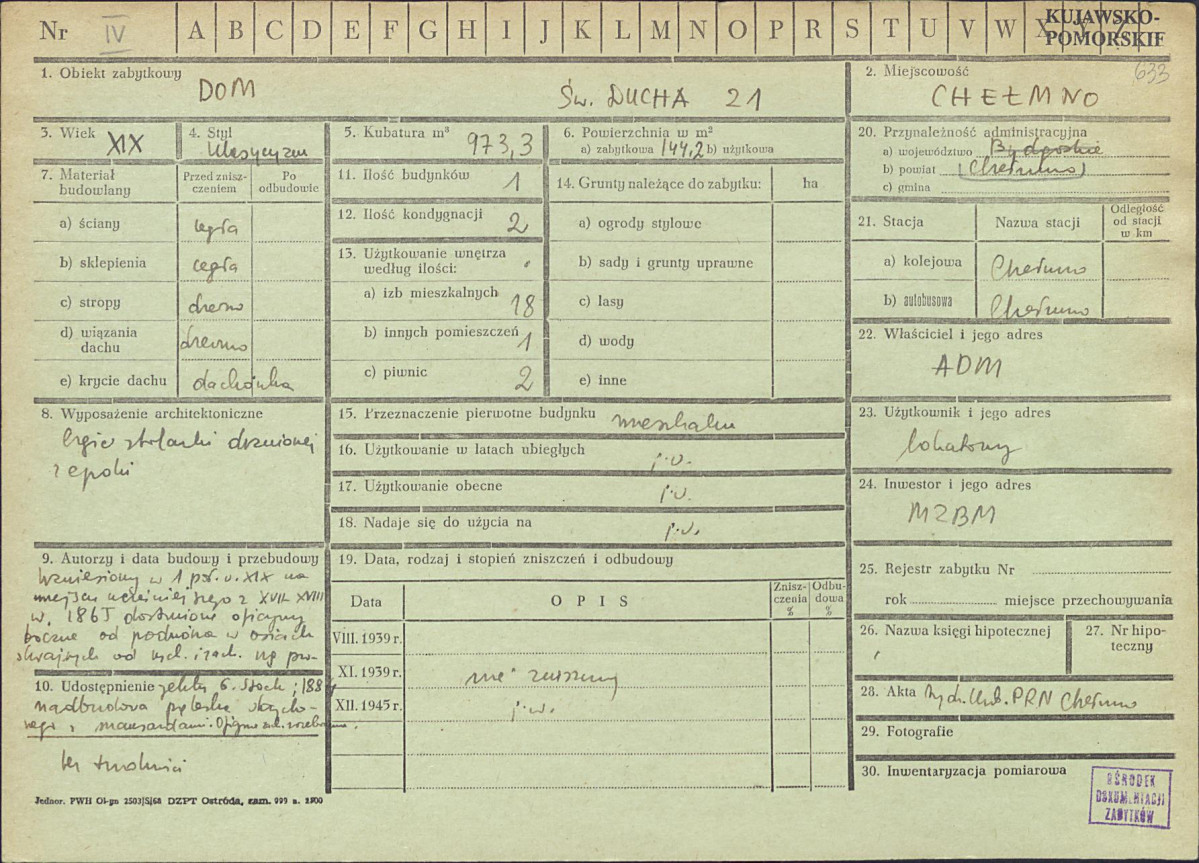 Nr IV A B C D E F G H I J K L M N O P R S T U V W X Y Z
KUJAWSKO-
POMORSKIE
633
1. Obiekt zabytkowy
DOM Św. DUCHA 21
2. Miejscowość
CHEŁMNO
3. Wiek XIX
4. Styl
klasycyzm
5. Kubatura m³
973,3
6. Powierzchnia w m²
a) zabytkowa 144,2 b) użytkowa
7. Materiał
budowlany
Przed znisz-
czeniem
Po
odbudowie
a) ściany cegła
b) sklepienia cegła
c) stropy drewno
d) wiązania
dachu drewno
e) krycie dachu dachówka
8. Wyposażenie architektoniczne
stolarki drzwiowej
z epoki
9. Autorzy i data budowy i przebudowy
Wzniesiony w 1 poł. w. XIX na
miejscu wcześniejszego z XVII XVIII
w. 1865 dostawione oficyny
boczne od podwórza w osiach
skrajnych od wsch. i zach. wg pro-
10. Udostępnienie
jektu G. ; 188
nadbudowa
z mansardami.
bez trudności
11. Ilość budynków 1
12. Ilość kondygnacji 2
13. Użytkowanie wnętrza
według ilości:
a) izb mieszkalnych 18
b) innych pomieszczeń 1
c) piwnic 2
14. Grunty należące do zabytku: ha
a) ogrody stylowe
b) sady i grunty uprawne
c) lasy
d) wody
e) inne
15. Przeznaczenie pierwotne budynku mieszkalne
16. Użytkowanie w latach ubiegłych j.w.
17. Użytkowanie obecne j.w.
18. Nadaje się do użycia na j.w.
19. Data, rodzaj i stopień zniszczeń i odbudowy
Data OPIS
Znisz-
czenia
%
Odbu-
dowa
%
VIII. 1939 r.
XI. 1939 r. nie zniszczony
XII. 1945 r. j.w.
20. Przynależność administracyjna
a) województwo Bydgoskie
b) powiat (Chełmno)
c) gmina
21. Stacja Nazwa stacji
Odległość
od stacji
w km
a) kolejowa Chełmno
b) autobusowa Chełmno
22. Właściciel i jego adres
ADM
23. Użytkownik i jego adres
lokatorzy
24. Inwestor i jego adres
MZBM
25. Rejestr zabytku Nr
rok miejsce przechowywania
26. Nazwa księgi hipotecznej
27. Nr hipo-
teczny
28. Akta Wydz. Kult. PRN Chełmno
29. Fotografie
30. Inwentaryzacja pomiarowa
OŚRODEK
DOKUMENTACJI
ZABYTKÓW
Jednor. PWH Ol-yn 2503/S/68 DZPT Ostróda, zam. 999 n. 1500